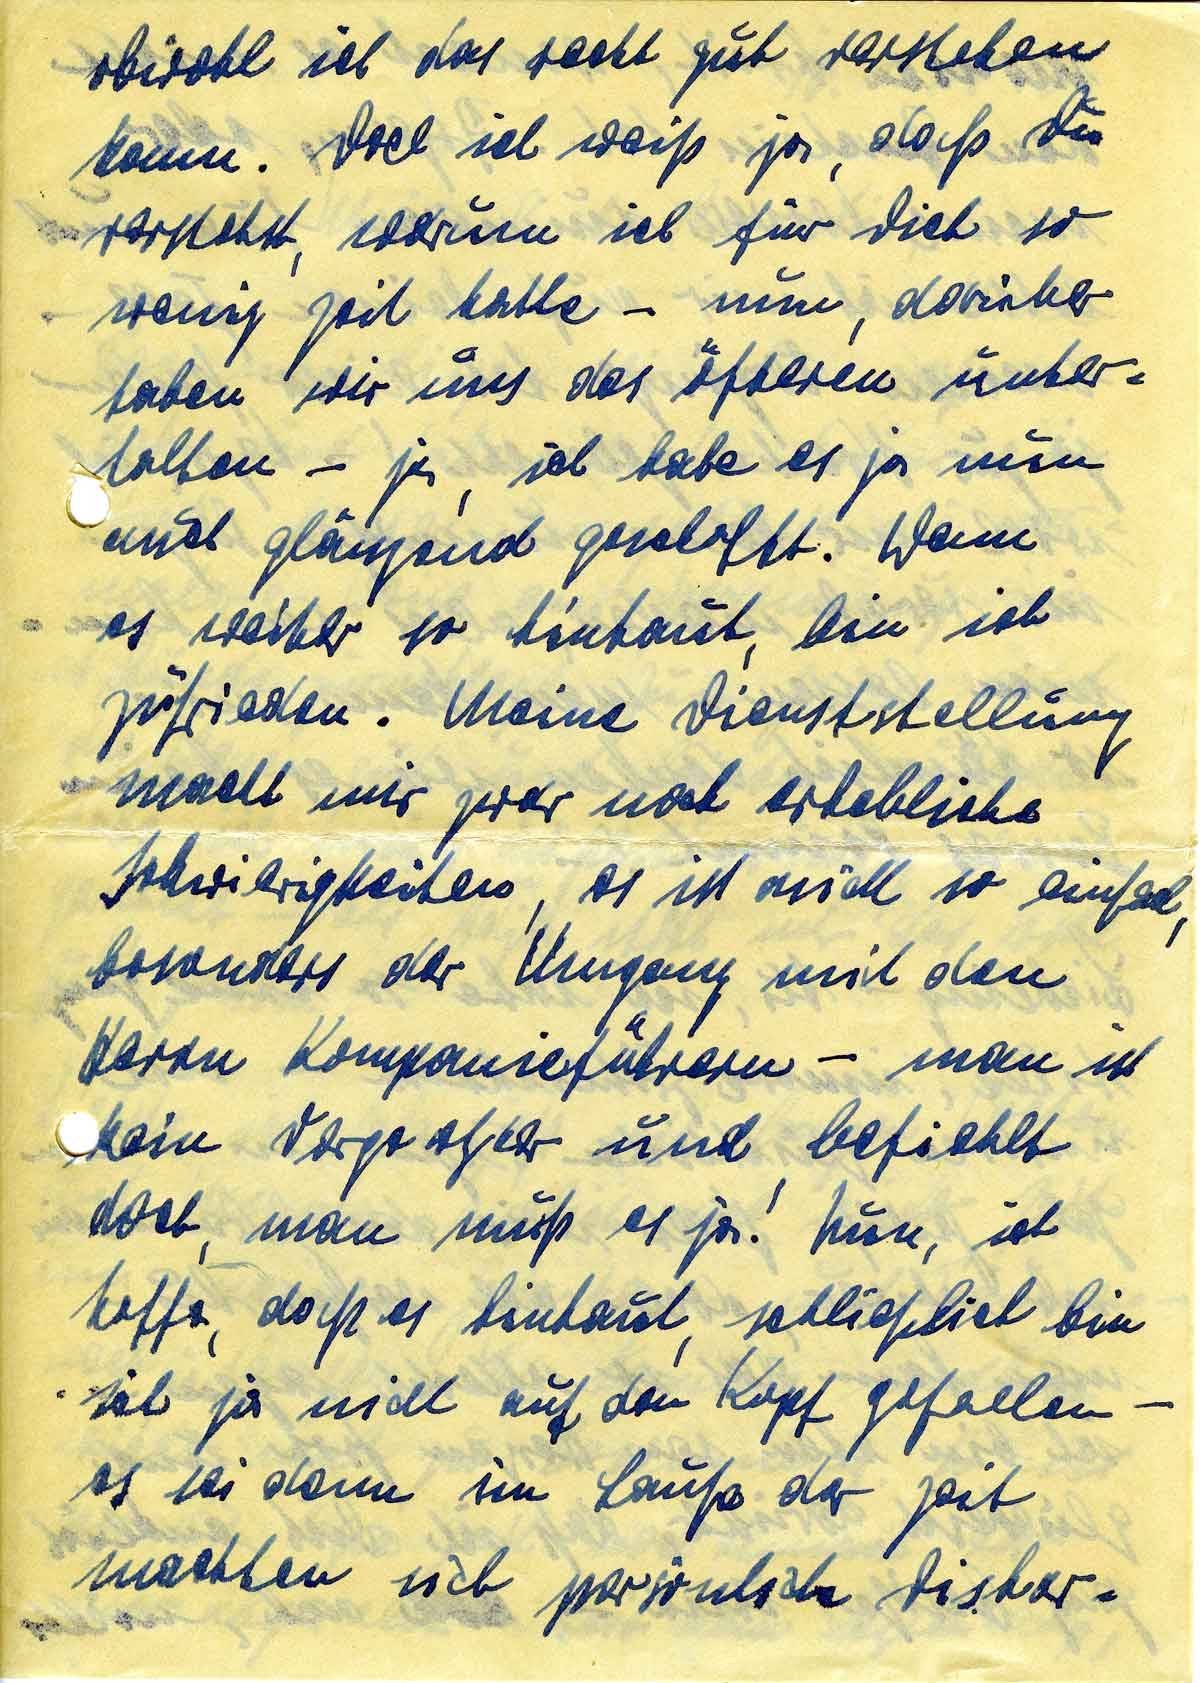 obwohl ich das recht gut verstehen
kann. Doch ich weiß ja, daß Du
verstehst, warum ich für Dich so
wenig Zeit hatte – nun, darüber
haben wir uns des öfteren unter=
halten – ja, ich habe es ja nun
auch glänzend geschafft. Wenn
es weiter so hinhaut, bin ich
zufrieden. Meine Dienststellung
macht mir zwar noch erhebliche
Schwierigkeiten, es ist nicht so einfach,
besonders der Umgang mit den
Herrn Kompanieführern – man ist
kein Vorgesetzter und befiehlt
doch, man muß es ja! Nun, ich
hoffe, daß es hinhaut, schließlich bin
ich ja nicht auf den Kopf gefallen –
es sei denn im Laufe der Zeit
machten sich persönliche Dishar=